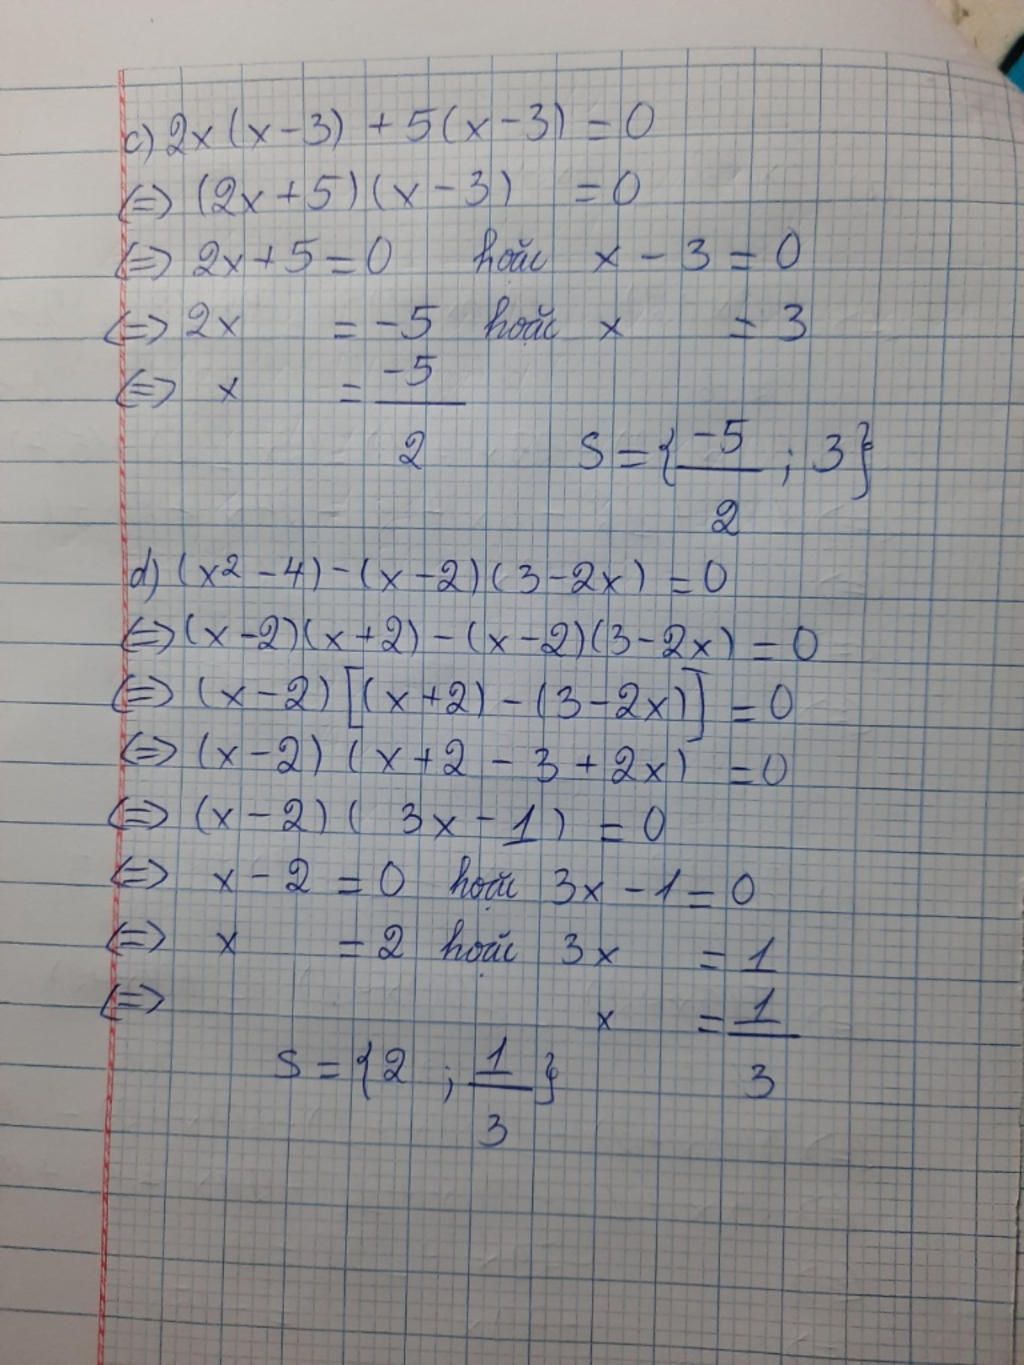 c) 2x(x-3) + 5(x-3) = 0
<=> (2x+5)(x-3) = 0
<=> 2x+5=0 hoặc x-3=0
<=> 2x = -5 hoặc x = 3
<=> x = -5/2
S={-5/2; 3}
d) (x²-4)-(x-2)(3-2x)=0
<=> (x-2)(x+2)-(x-2)(3-2x)=0
<=> (x-2)[(x+2)-(3-2x)]=0
<=> (x-2)(x+2-3+2x)=0
<=> (x-2)(3x-1)=0
<=> x-2=0 hoặc 3x-1=0
<=> x =2 hoặc 3x =1
<=> x = 1/3
S={2; 1/3}